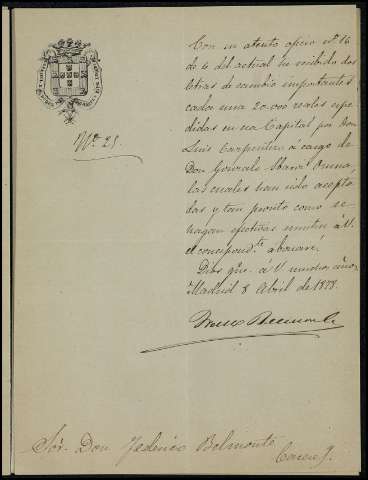 Con su atento oficio nº 16
de 4 del actual he recibido dos
letras de cambio importantes
cada una 20.000 reales expe-
didas en esa Capital por Don
Luis Carpintero á cargo de
Don Gonzalo
las cuales han sido acepta-
das y tan pronto como se
hagan efectivas remitiré á V.
el correspond.te abonaré.
Dios gue. á V. muchos años.
Madrid 8 Abril de 1878.
Nº 25.
Sór. Don Federico Belmonte